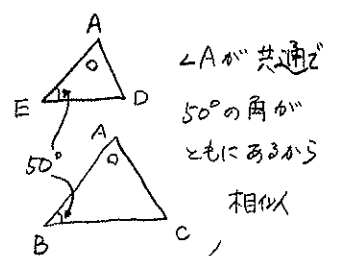 A
E
D
50°
A
B
C
∠Aが共通で
50°の角が
ともにあるから
相似